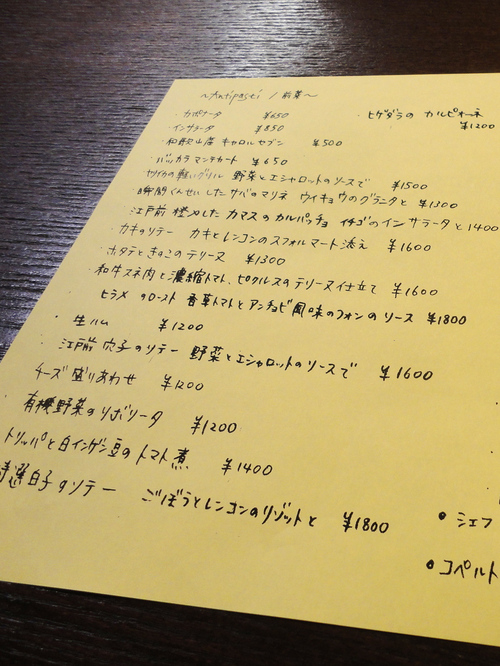 ～Antipasti / 前菜～
・カポナータ ¥650
・インサラータ ¥850
・和歌山産 キャロルセブン ¥500
・バッカラマンテカート ¥650
・ヤリイカの軽いグリル 野菜とエシャロットのソースで ¥1500
・瞬間くんせいしたサバのマリネ ウイキョウのグラニタと ¥1300
・江戸前 〆したカマスのカルパッチョ イチゴのインサラータと 1400
・カキのソテー カキとレンコンのスフォルマート添え ¥1600
・ホタテときのこのテリーヌ ¥1300
・和牛スネ肉と濃縮トマト、ピクルスのテリーヌ仕立て ¥1600
・ヒラメのロースト 香草トマトとアンチョビ風味のフォンのソース ¥1800
・生ハム ¥1200
・江戸前 穴子のソテー 野菜とエシャロットのソースで ¥1600
チーズ盛りあわせ ¥1200
・有機野菜のリボリータ ¥1200
トリッパと白インゲン豆のトマト煮 ¥1400
特選白子のソテー ごぼうとレンコンのリゾットと ¥1800
・ヒゲダラのカルピオーネ ¥1200
・シェフ
・コペルト